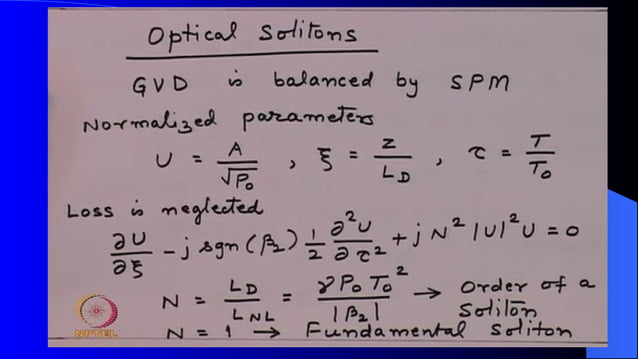 Optical Solitons
GVD is balanced by SPM
Normalized parameters
U = A/√P₀ , ξ = z/L_D , τ = T/T₀
Loss is neglected
∂U/∂ξ - j sgn(β₂) 1/2 ∂²U/∂τ² + j N² |U|² U = 0
N = L_D/L_NL = γ P₀ T₀²/|β₂| → Order of a Soliton
N = 1 → Fundamental Soliton
NPTEL